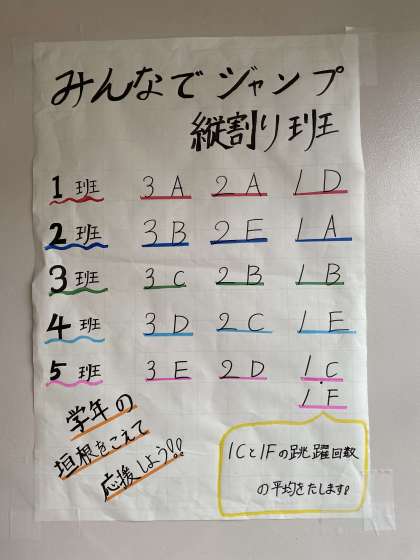 みんなでジャンプ
縦割り班
1班 3A 2A 1D
2班 3B 2E 1A
3班 3C 2B 1B
4班 3D 2C 1E
5班 3E 2D 1C
1F
学年の
垣根をこえて
応援しよう!!
1Cと1Fの跳躍回数
の平均をたします!